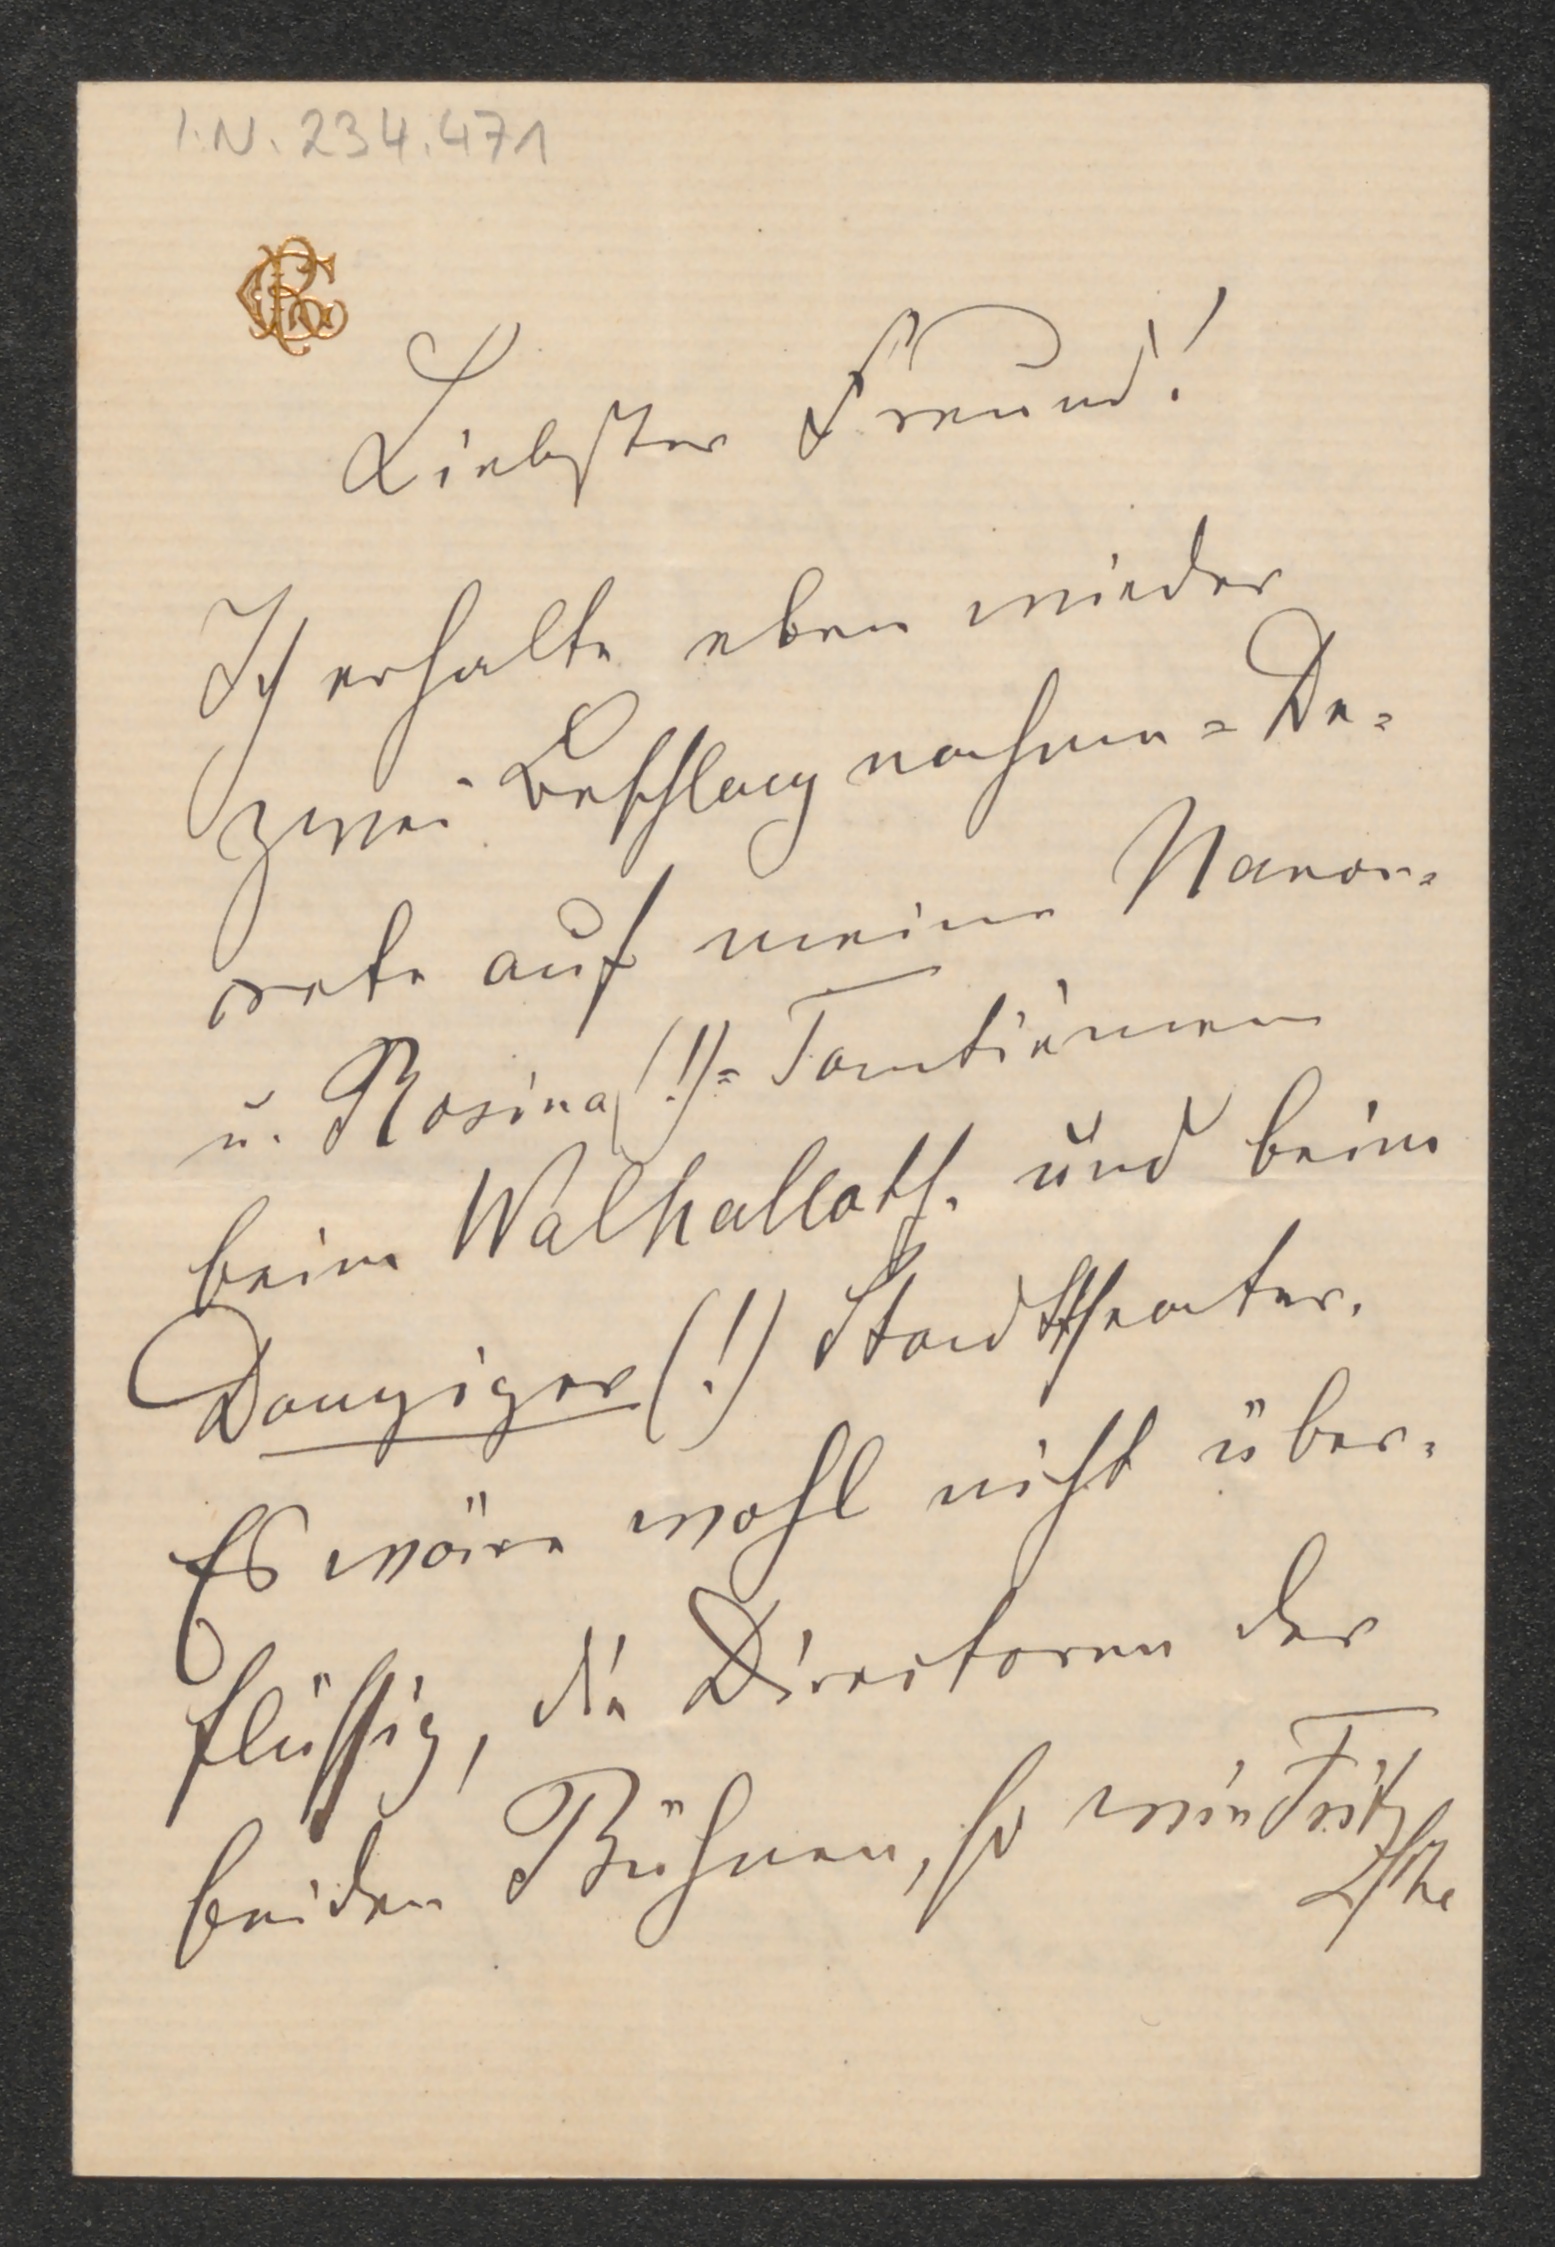 I.N. 234.471
Liebster Freund!
Ich erhalte eben wieder
zwei Beschlagnahme=De=
crete auf meine Nanon=
u. Rosina(!)=Tantièmen
beim Walhallath. und beim
Danziger (!) Stadttheater.
Es wäre wohl nicht über=
flüssig, die Directoren der
beiden Bühnen, so wie Fritz